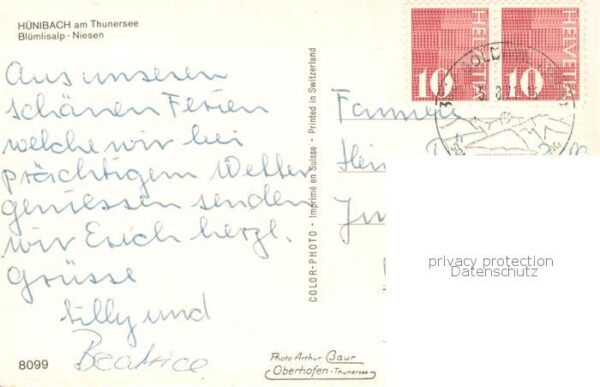 HÜNIBACH am Thunersee
Blümlisalp - Niesen
Aus unseren
schönen Ferien
welche wir bei
prächtigem Wetter
geniessen senden
wir Euch herzl.
Grüsse
Lilly und
Beatrice
8099
COLOR-PHOTO - Imprimé en Suisse - Printed in Switzerland
10 HELVETIA
10 HELVETIA
Familie
Photo Arthur Baur
Oberhofen - Thunersee
privacy protection
Datenschutz